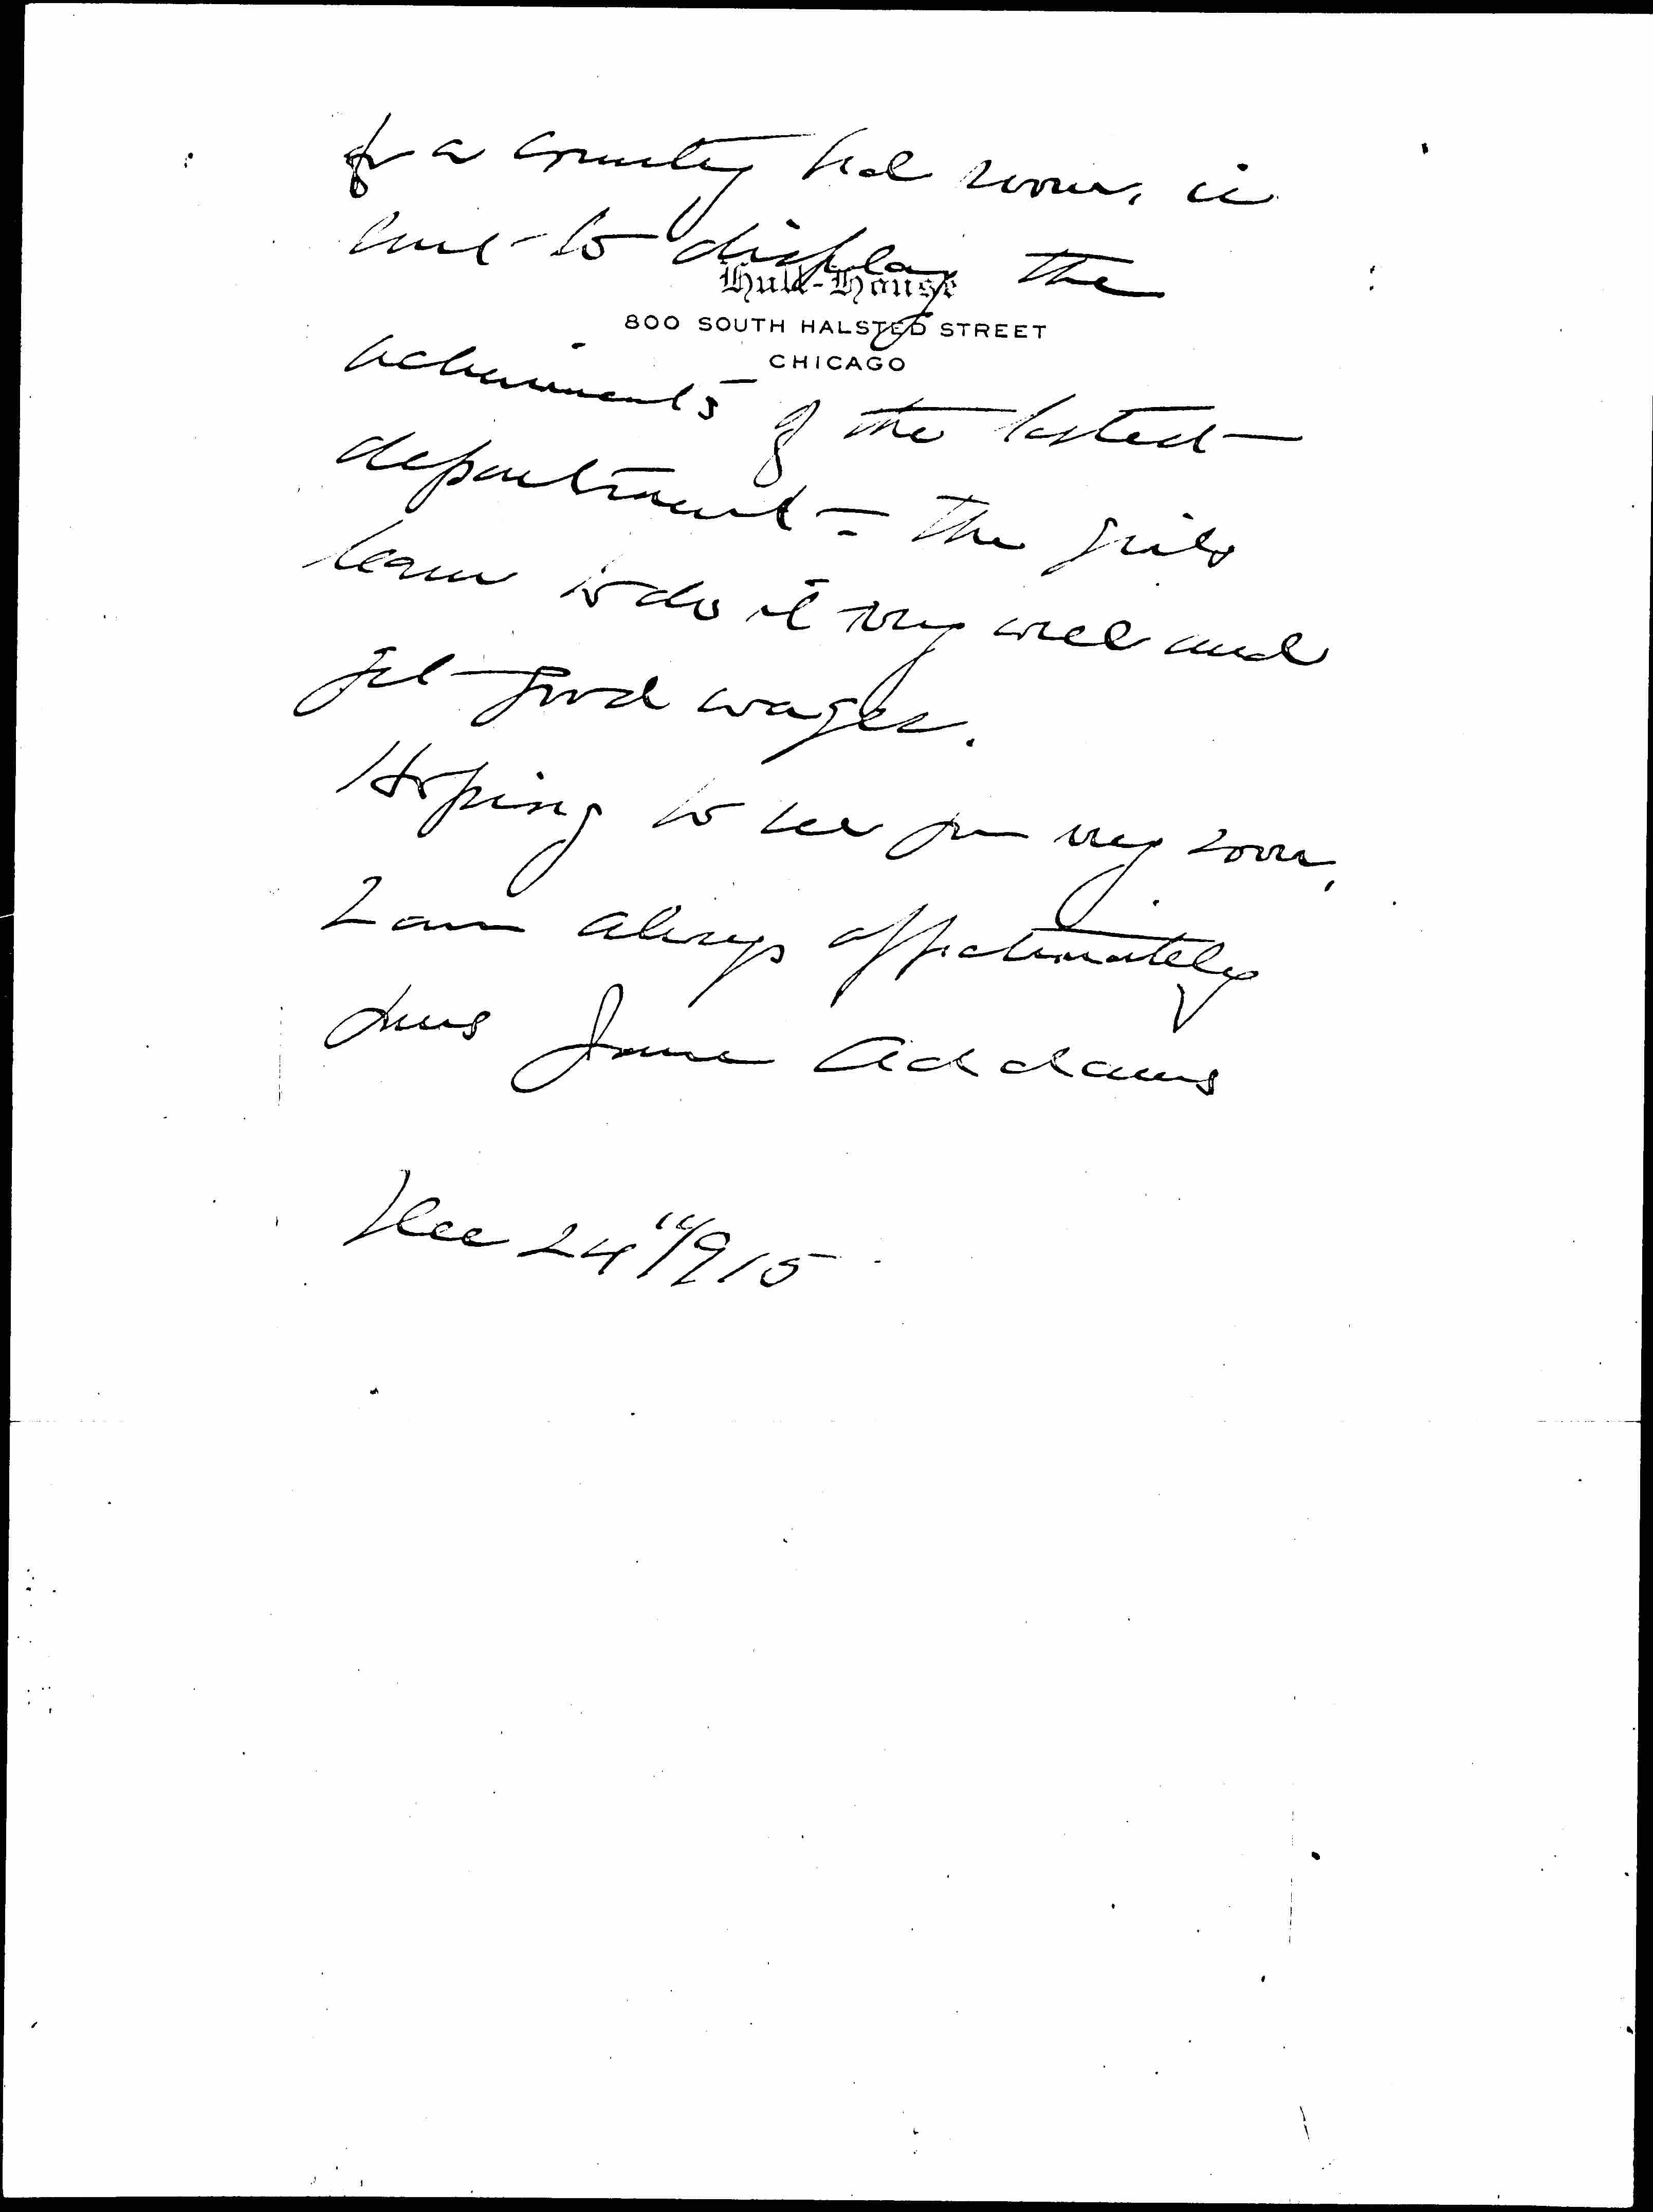 for a country bed room, is
sent to display the
Hull-House
800 SOUTH HALSTED STREET
CHICAGO
achievements of the
department - The girls
learn to do it very well and
get good wages.
Hoping to see you very soon,
I am always affectionately
yours Jane Addams
Dec 24" 1915